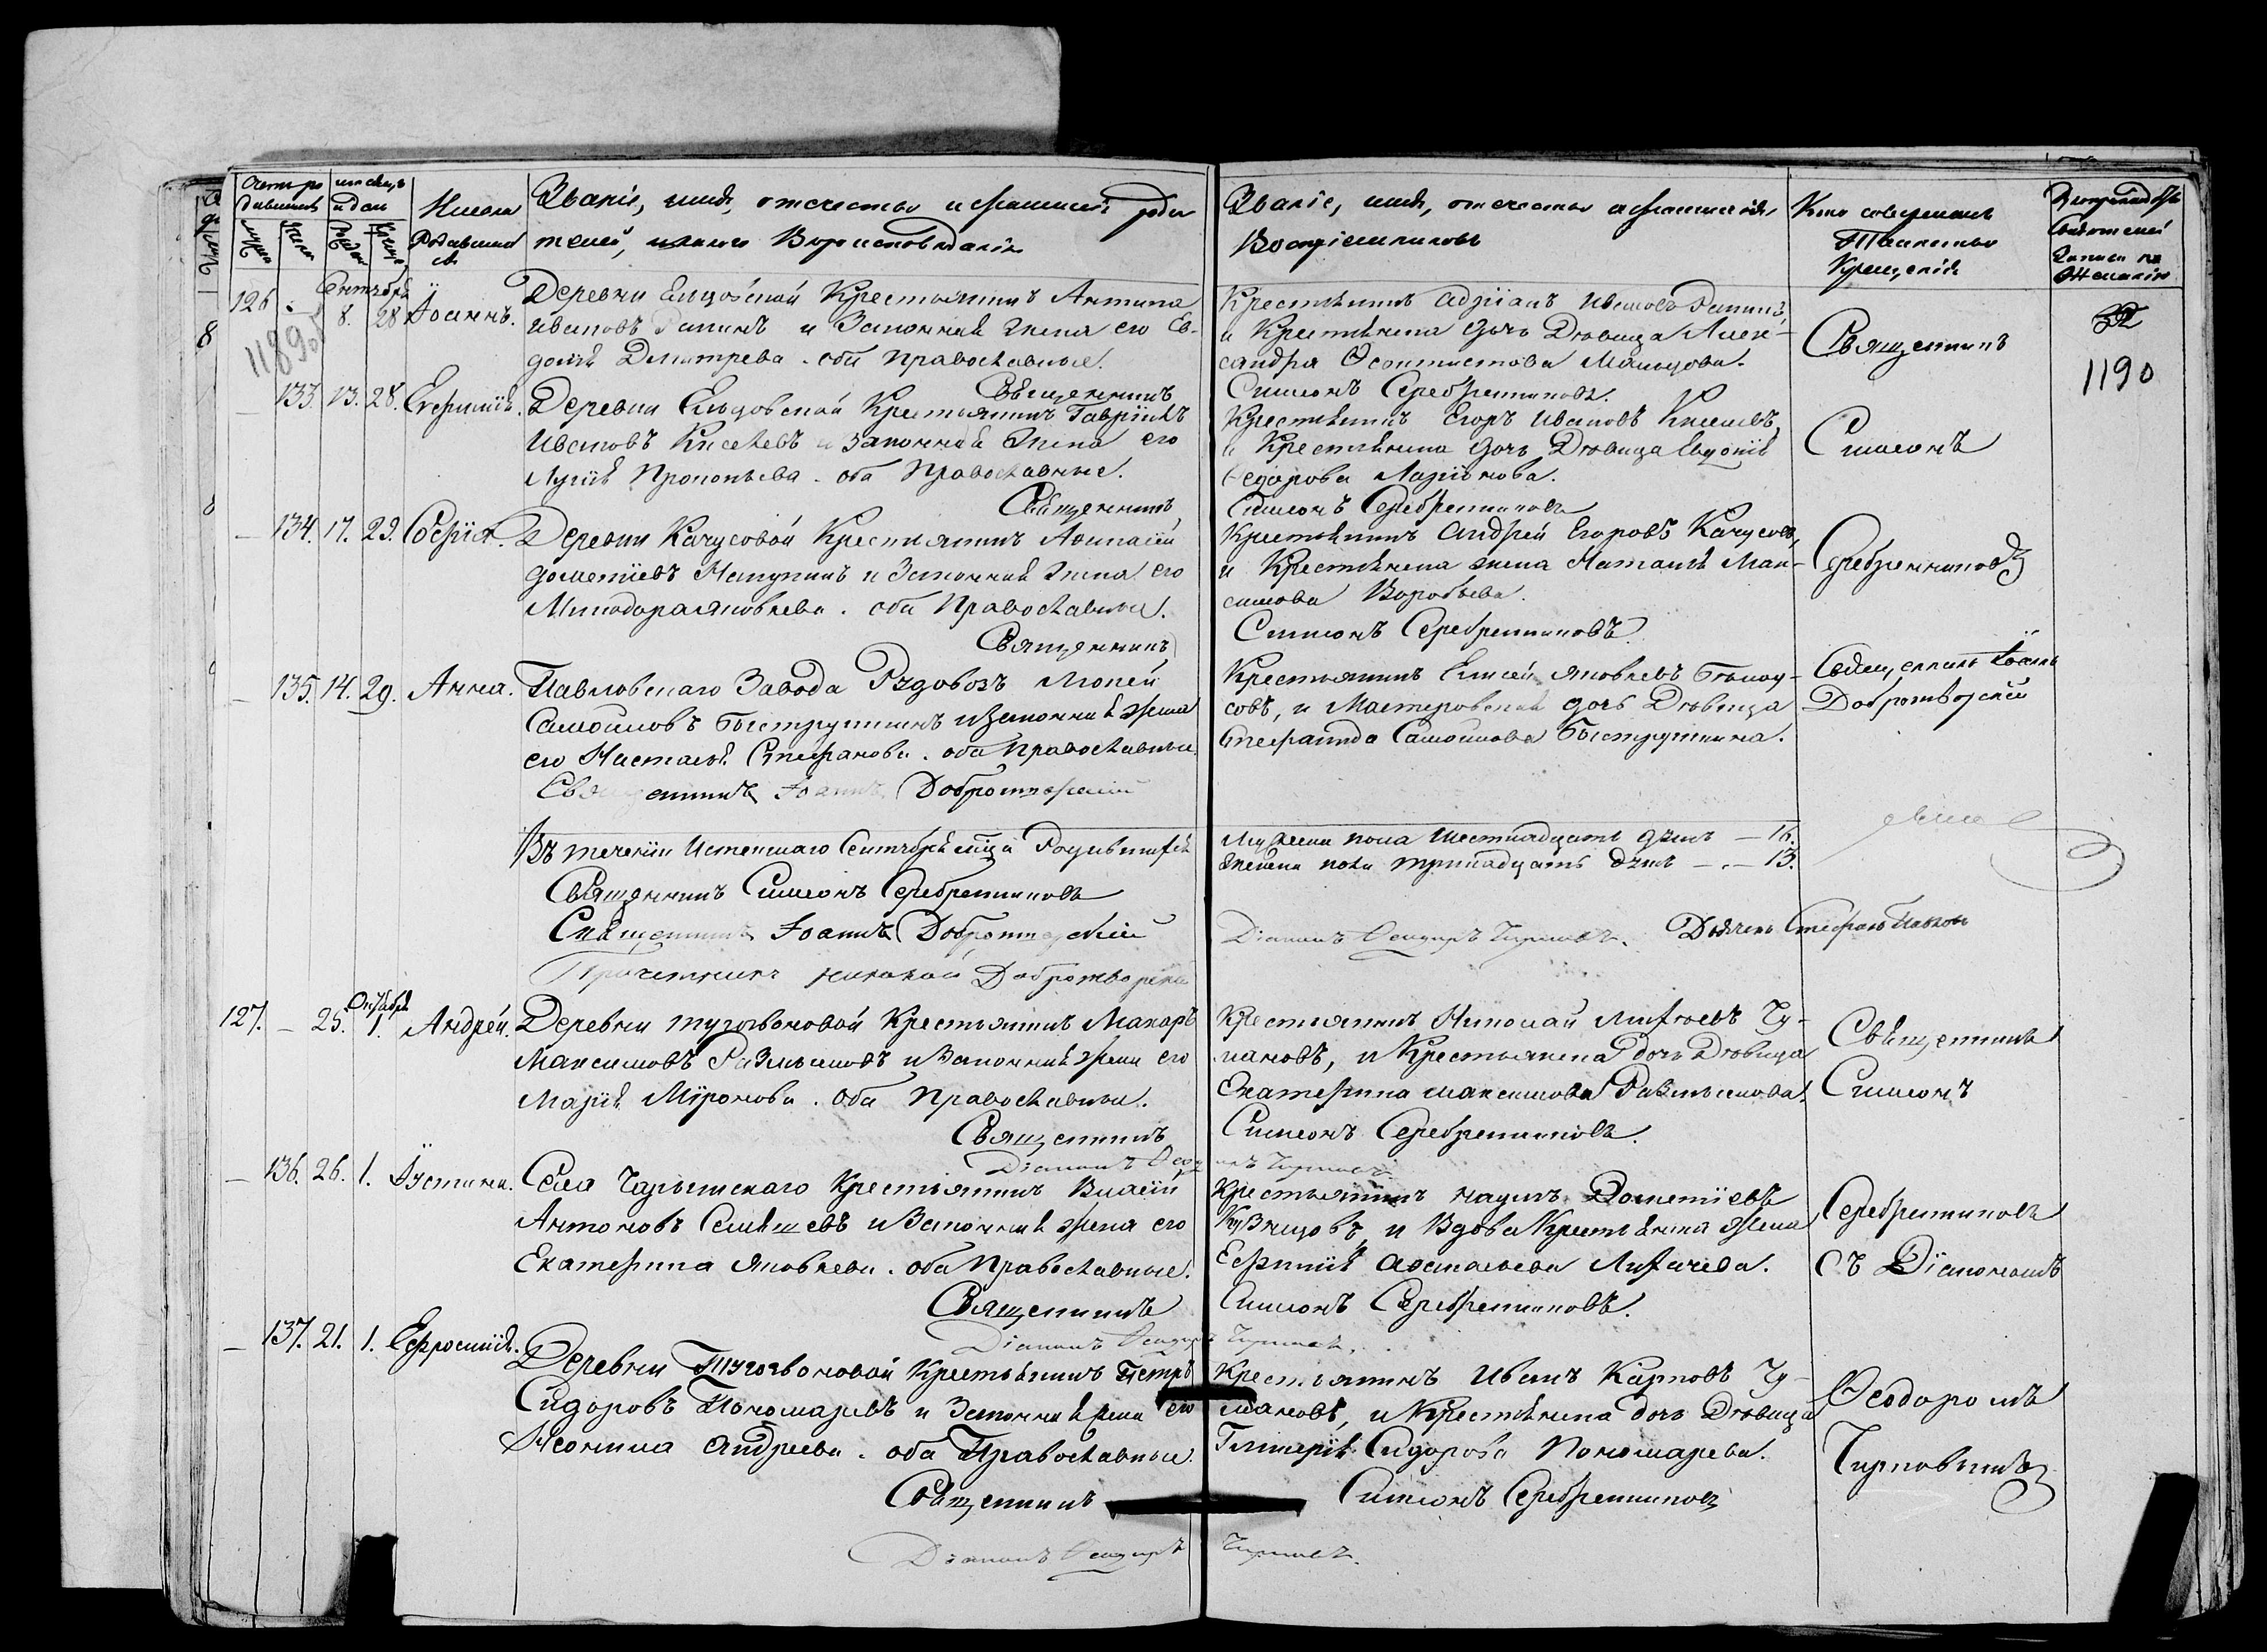 Счетъ ро
дившихся
мѣсяцъ
и дни
Имена
Родивших
ся
Званіе, имя, отчество и фамилія роди
телей, и какого Вѣроисповѣданія
Званіе, имя, отчество и фамилія
Воспріемниковъ
Кто совершалъ
Таинство
Крещенія
Рукоприкладство
Свидѣтелей
Записи по
Желанію
Сентября
126 8. 28 Іоаннъ.
Деревни Ельцовской Крестьянинъ Антипа
Ивановъ и Законная жена его Ев-
докія Дмитрева. оба Православные.
Священникъ
Крестьянинъ Адріанъ Ивановъ
и Крестьянина дочь Дѣвица Алек-
сандра Ѳеоктистова
Симеонъ Серебренниковъ.
Священникъ
32
1190
1189об
133. 13. 28. Евфимія.
Деревни Ельцовской Крестьянинъ Гавріилъ
Ивановъ Киселевъ и Законная Жена его
Лукія Прокопьева. оба Православные.
Священникъ
Крестьянинъ Егоръ Ивановъ Киселевъ,
и Крестьянина дочь Дѣвица Евдокія
Ѳедорова Ларіонова.
Симеонъ Серебренниковъ
Симеонъ
134. 17. 29. Софія.
Деревни Качусовой Крестьянинъ Аѳанасій
Дометіевъ и Законная жена его
Минодора Яковлева. оба Православные.
Священникъ
Крестьянинъ Андрей Егоровъ Качусовъ,
и Крестьянина жена Наталья Мак-
симова Воробьева.
Симеонъ Серебренниковъ.
Серебренниковъ
135. 14. 29. Анна.
Павловскаго Завода Рудовозъ Мокей
Самойловъ Быструшкинъ и Законная жена
его Настасья Стефанова. оба Православные.
Священникъ Іоаннъ Добротворскій
Крестьянинъ Елисей Яковлевъ
совъ, и Мастеровскаго дочь Дѣвица
Степанида Самойлова Быструшкина.
Священникъ Іоаннъ
Добротворскій
Въ теченіи Истекшаго Сентября мѣсяца Родившихся
Мужеска пола Шестнадцать душъ — 16.
женска пола тринадцать душъ — 13.
Священникъ Симеонъ Серебренниковъ
Священникъ Іоаннъ Добротворскій
Діаконъ Ѳеодоръ Чирковъ. Дьячекъ Стефанъ
Причетникъ Николай Добротворскій
Октября
127. — 25. 1. Андрей.
Деревни Тугозвоновой Крестьянинъ Макаръ
Максимовъ и Законная жена его
Марія Миронова. оба Православны.
Священникъ
Діаконъ Ѳеодоръ Чирковъ
Крестьянинъ Николай Чу-
мановъ, и Крестьянина дочь Дѣвица
Екатерина Максимова
Симеонъ Серебренниковъ.
Священникъ
Симеонъ
136. 26. 1. Іустина.
Села Чарышскаго Крестьянинъ Василій
Антоновъ и Законная жена его
Екатерина Яковлева. оба Православные.
Священникъ
Діаконъ Ѳеодоръ Чирковъ.
Крестьянинъ Наумъ Дометіевъ
Кузнецовъ, и Вдова Крестьянина жена
Евфимія Аѳанасьева Лихачева.
Симеонъ Серебренниковъ.
Серебренниковъ
съ Діакономъ
137. 21. 1. Ефросинія.
Деревни Тугозвоновой Крестьянинъ Петръ
Сидоровъ Пономаревъ и Законная жена его
Неонила Андреева. оба Православные.
Священникъ
Крестьянинъ Иванъ Карповъ Чу-
мановъ, и Крестьянина дочь Дѣвица
Гликерія Сидорова Пономарева.
Симеонъ Серебренниковъ
Ѳеодоромъ
Чирковымъ
Діаконъ Ѳеодоръ Чирковъ.